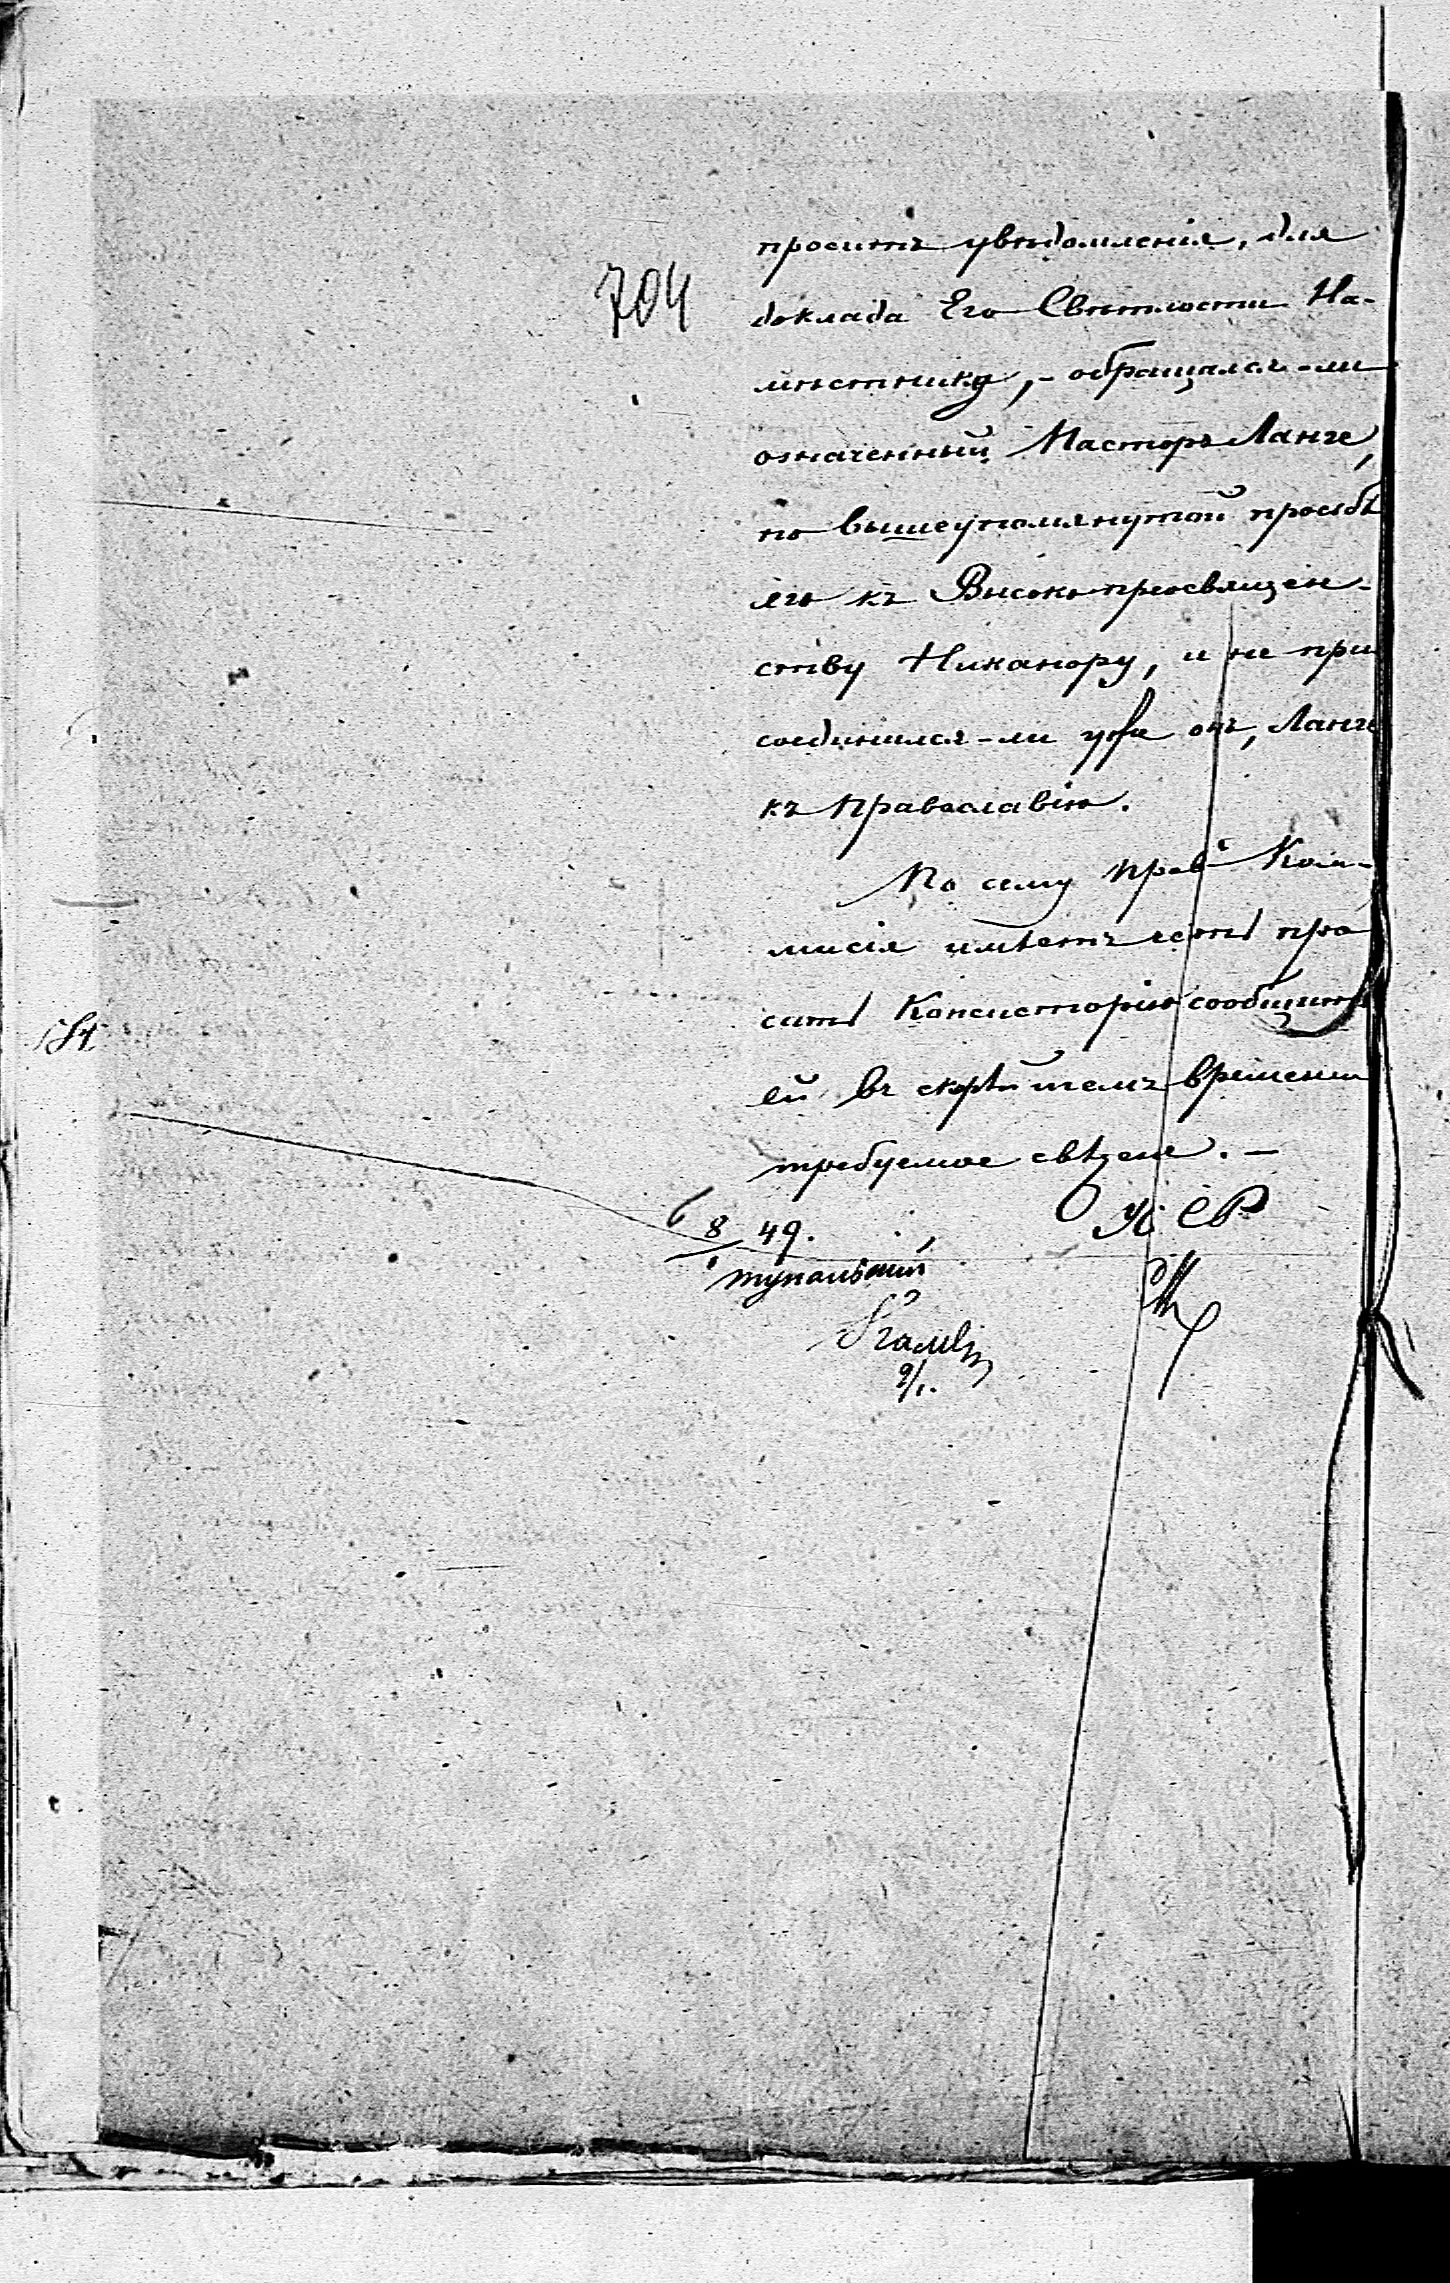 704
проситъ увѣдомленія, для
доклада Его Свѣтлости На-
мѣстнику, - обращался-ли
означенный Пасторъ Ланге,
по вышеупомянутой просьбѣ
его къ Высокопреосвящен-
ству Никанору, и не при
соединился-ли уже онъ, Ланге
къ Православію.
По сему Прав. Ком-
мисія имѣетъ честь про
сить Консисторію сообщить
ей въ скорѣйшемъ времени
требуемое свѣденіе. -
8 49.
9/1.